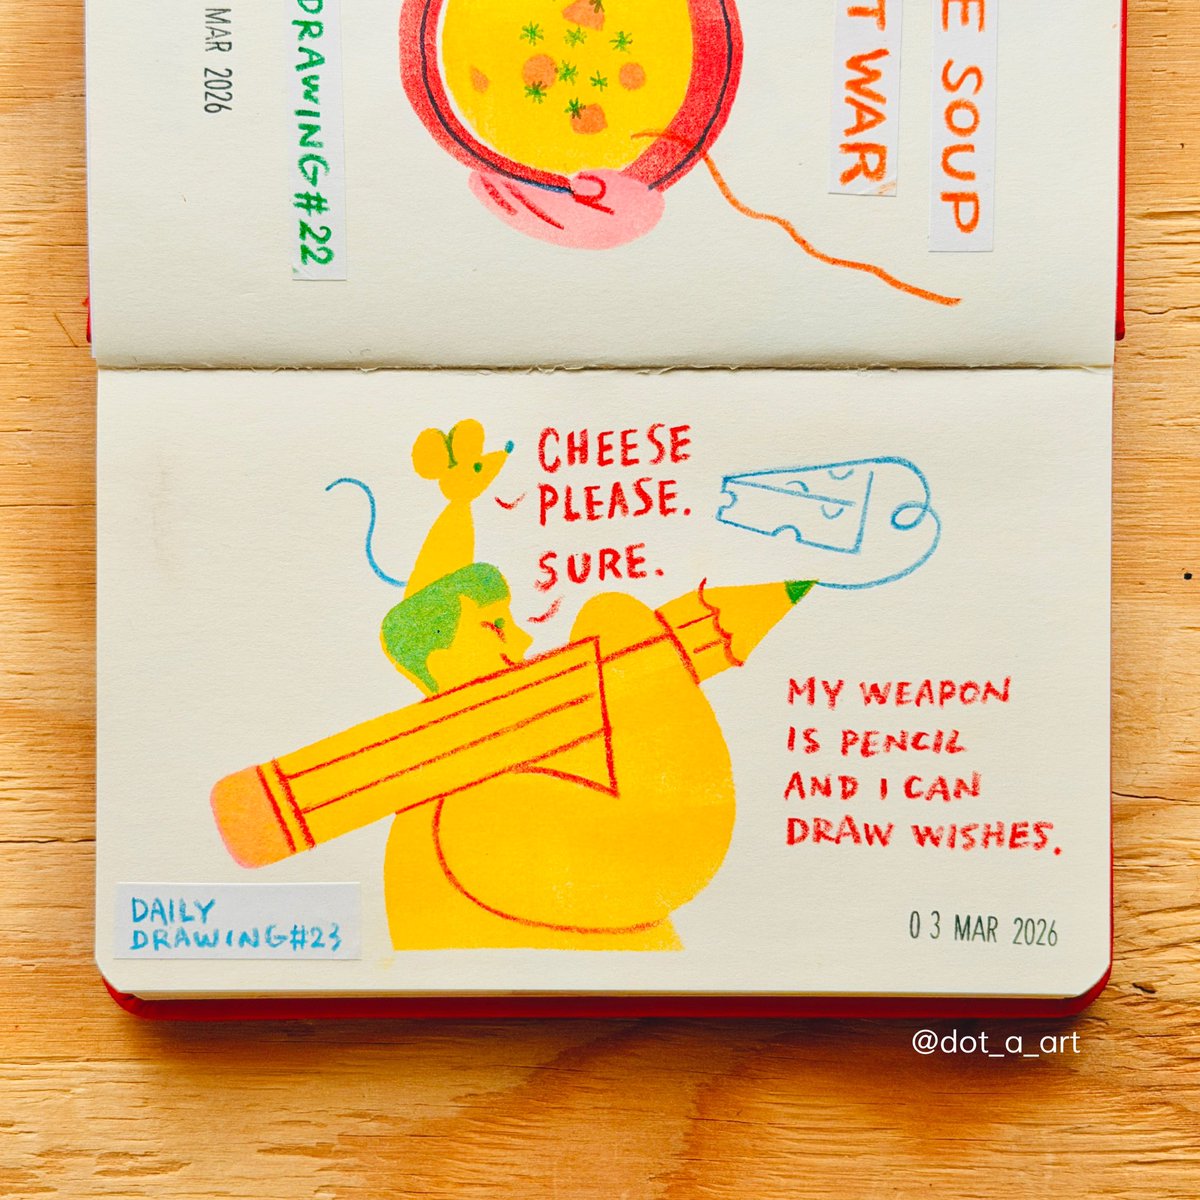 MAR 2026
DRAWING#22
T WAR
E SOUP
CHEESE
PLEASE.
SURE.
MY WEAPON
IS PENCIL
AND I CAN
DRAW WISHES.
DAILY
DRAWING#23
03 MAR 2026
@dot_a_art